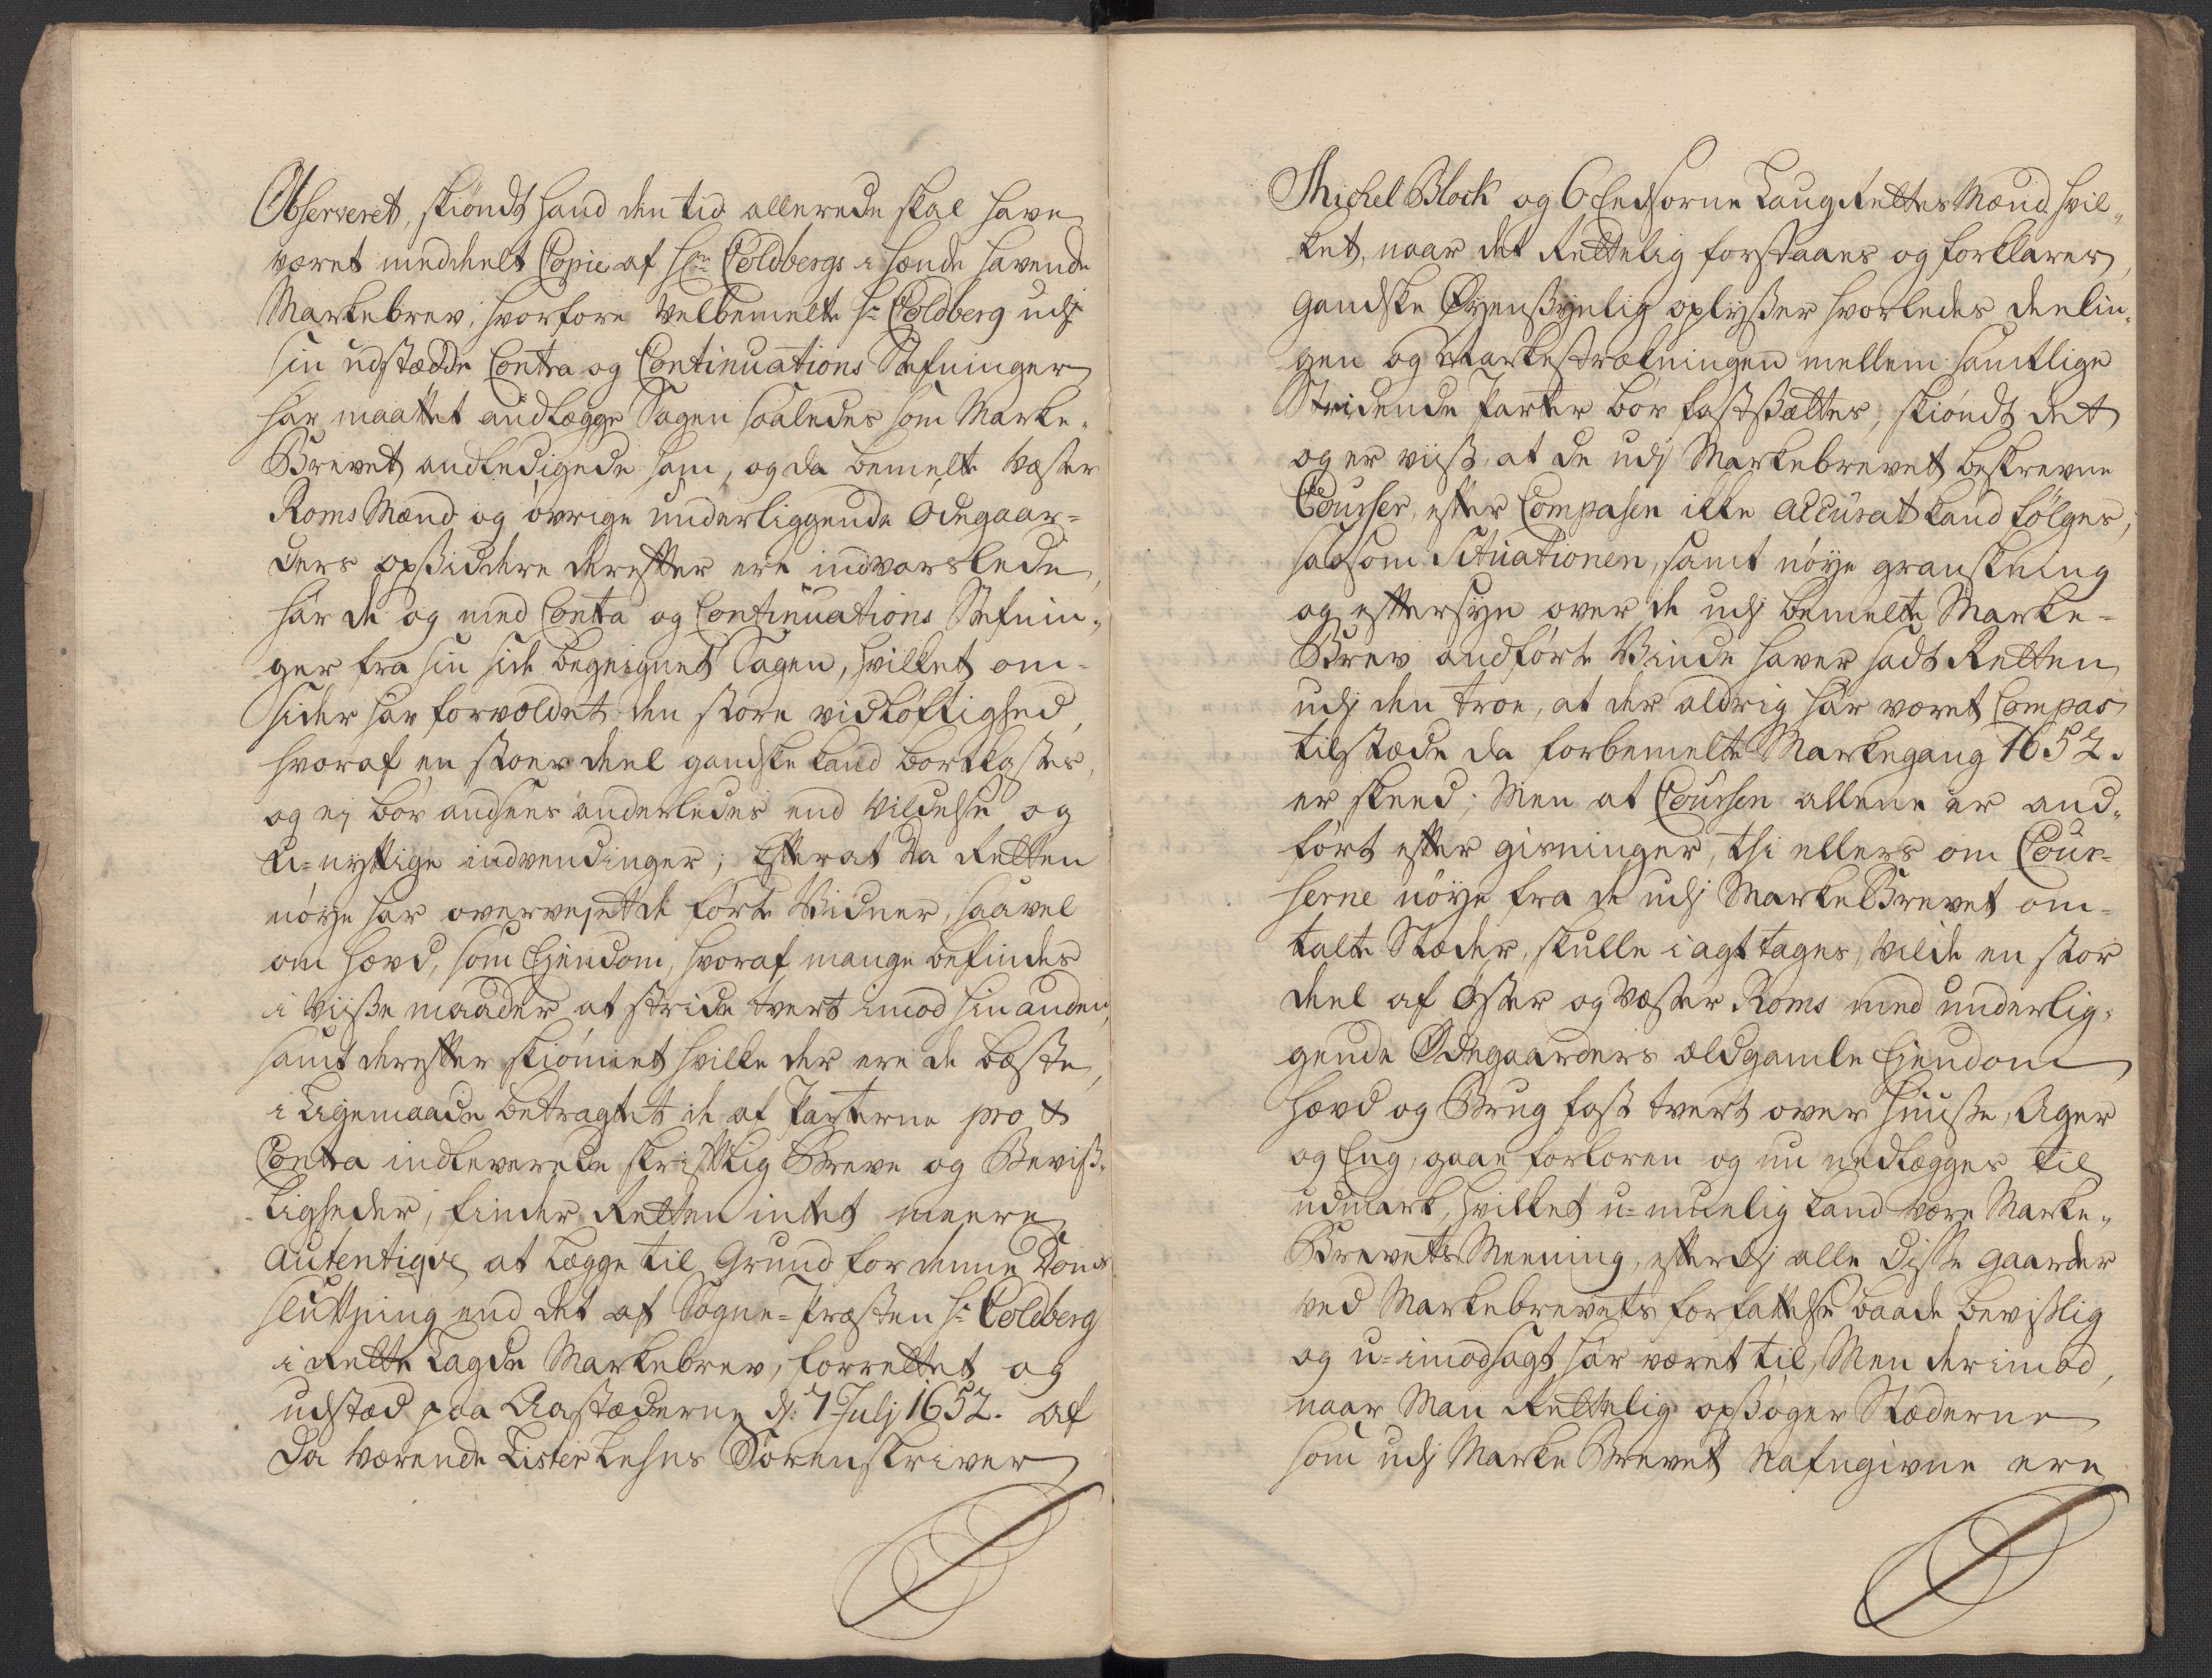 Observeret, skiöndt hand den tid allerede skal have
været meddeelt Copie af Hr. Coldbergs i hænde havende
Markebrev, hvorfore Velbemelte Hr. Coldberg udj
sin udstædde Contra og Continuations Stefninger
har maattet andlægge Sagen saaledes som Marke-
Brevet andledigede ham, og da bemelte Wæster
Roms Mænd og övrige underliggende Ödegaar-
ders opsiddere derefter ere indvarslede,
har de og med Contra og Continuations Stefnin-
ger fra sin side begeignet Sagen, hvilket om-
sider har forvoldet den store vidtlöftighed,
hvoraf en stoer deel gandske kand bortkastes,
og ej bör ansees anderledes end vildelse og
u-nyttige indvendinger; Efterat da Retten
nöye har overvejet de förte Vidner, saavel
om hævd, som Ejendom, hvoraf mange befindes
i Viisse maader at stride tvert imod hin anden,
samt derefter skiönnet hvilke der ere de bæste,
i Ligemaade betragtet de af Parterne pro &
Contra indleverede skriftlig Breve og Beviis-
ligheder, finder Retten intet meere
autentiqve at lægge til Grund for denne Doms
sluttning end det af Sogne-Præsten Hr. Coldberg
i Rette Lagde Markebrev, forrettet og
udstæd paa Aastæderne d: 7 Julj 1652. af
da Værende Lister Lehns Sorenskriver
Michel Block og 6 Eedsorne Laug Rettes Mænd, hvil-
ket, naar det Rettelig forstaaes og forklares,
gandske Öyensynlig oplyser hvorledes deelin-
gen og Markestrækningen mellem samtlige
Stridende Parter bör fastsættes, skiöndt det
og er viist, at de udj Markebrevet beskrevne
Courser, efter Compasen ikke accurat kand fölges,
saasom Situationen, samt nöye granskning
og eftersyn over de udj bemelte Marke-
Brev andförte Minde haver sadt Retten
udj den troe, at der aldrig har været Compas
tilstæde da forbemelte Markegang 1652.
er skeed; Men at Coursen allene er and-
fört efter gisninger, thi ellers om Cour-
serne nöye fra de udj Marke Brevet om-
talte Stæder, skulle i agt tages, vilde en stor
deel af Öster og Væster Roms med underlig-
gende Ödegaarders ældgamle Ejendom
hævd og Brug fast tvert over Huuse, Ager
og Eng, gaae forloren og nu nedlægges til
udmark, hvilket u-muelig kand være Marke-
Brevets Meening, efterdj alle disse gaarder
ved Markebrevets forfattelse baade bevislig
og u-imodsagt har været til, Men derimod,
naar Man Rettelig opsöger Stæderne
som udj Marke Brevet Nafngivne ere